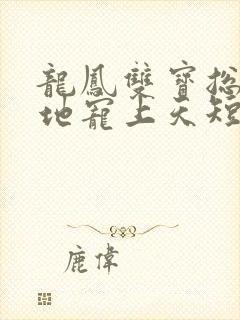 龍鳳雙寶總
地寵上天短
鹿偉